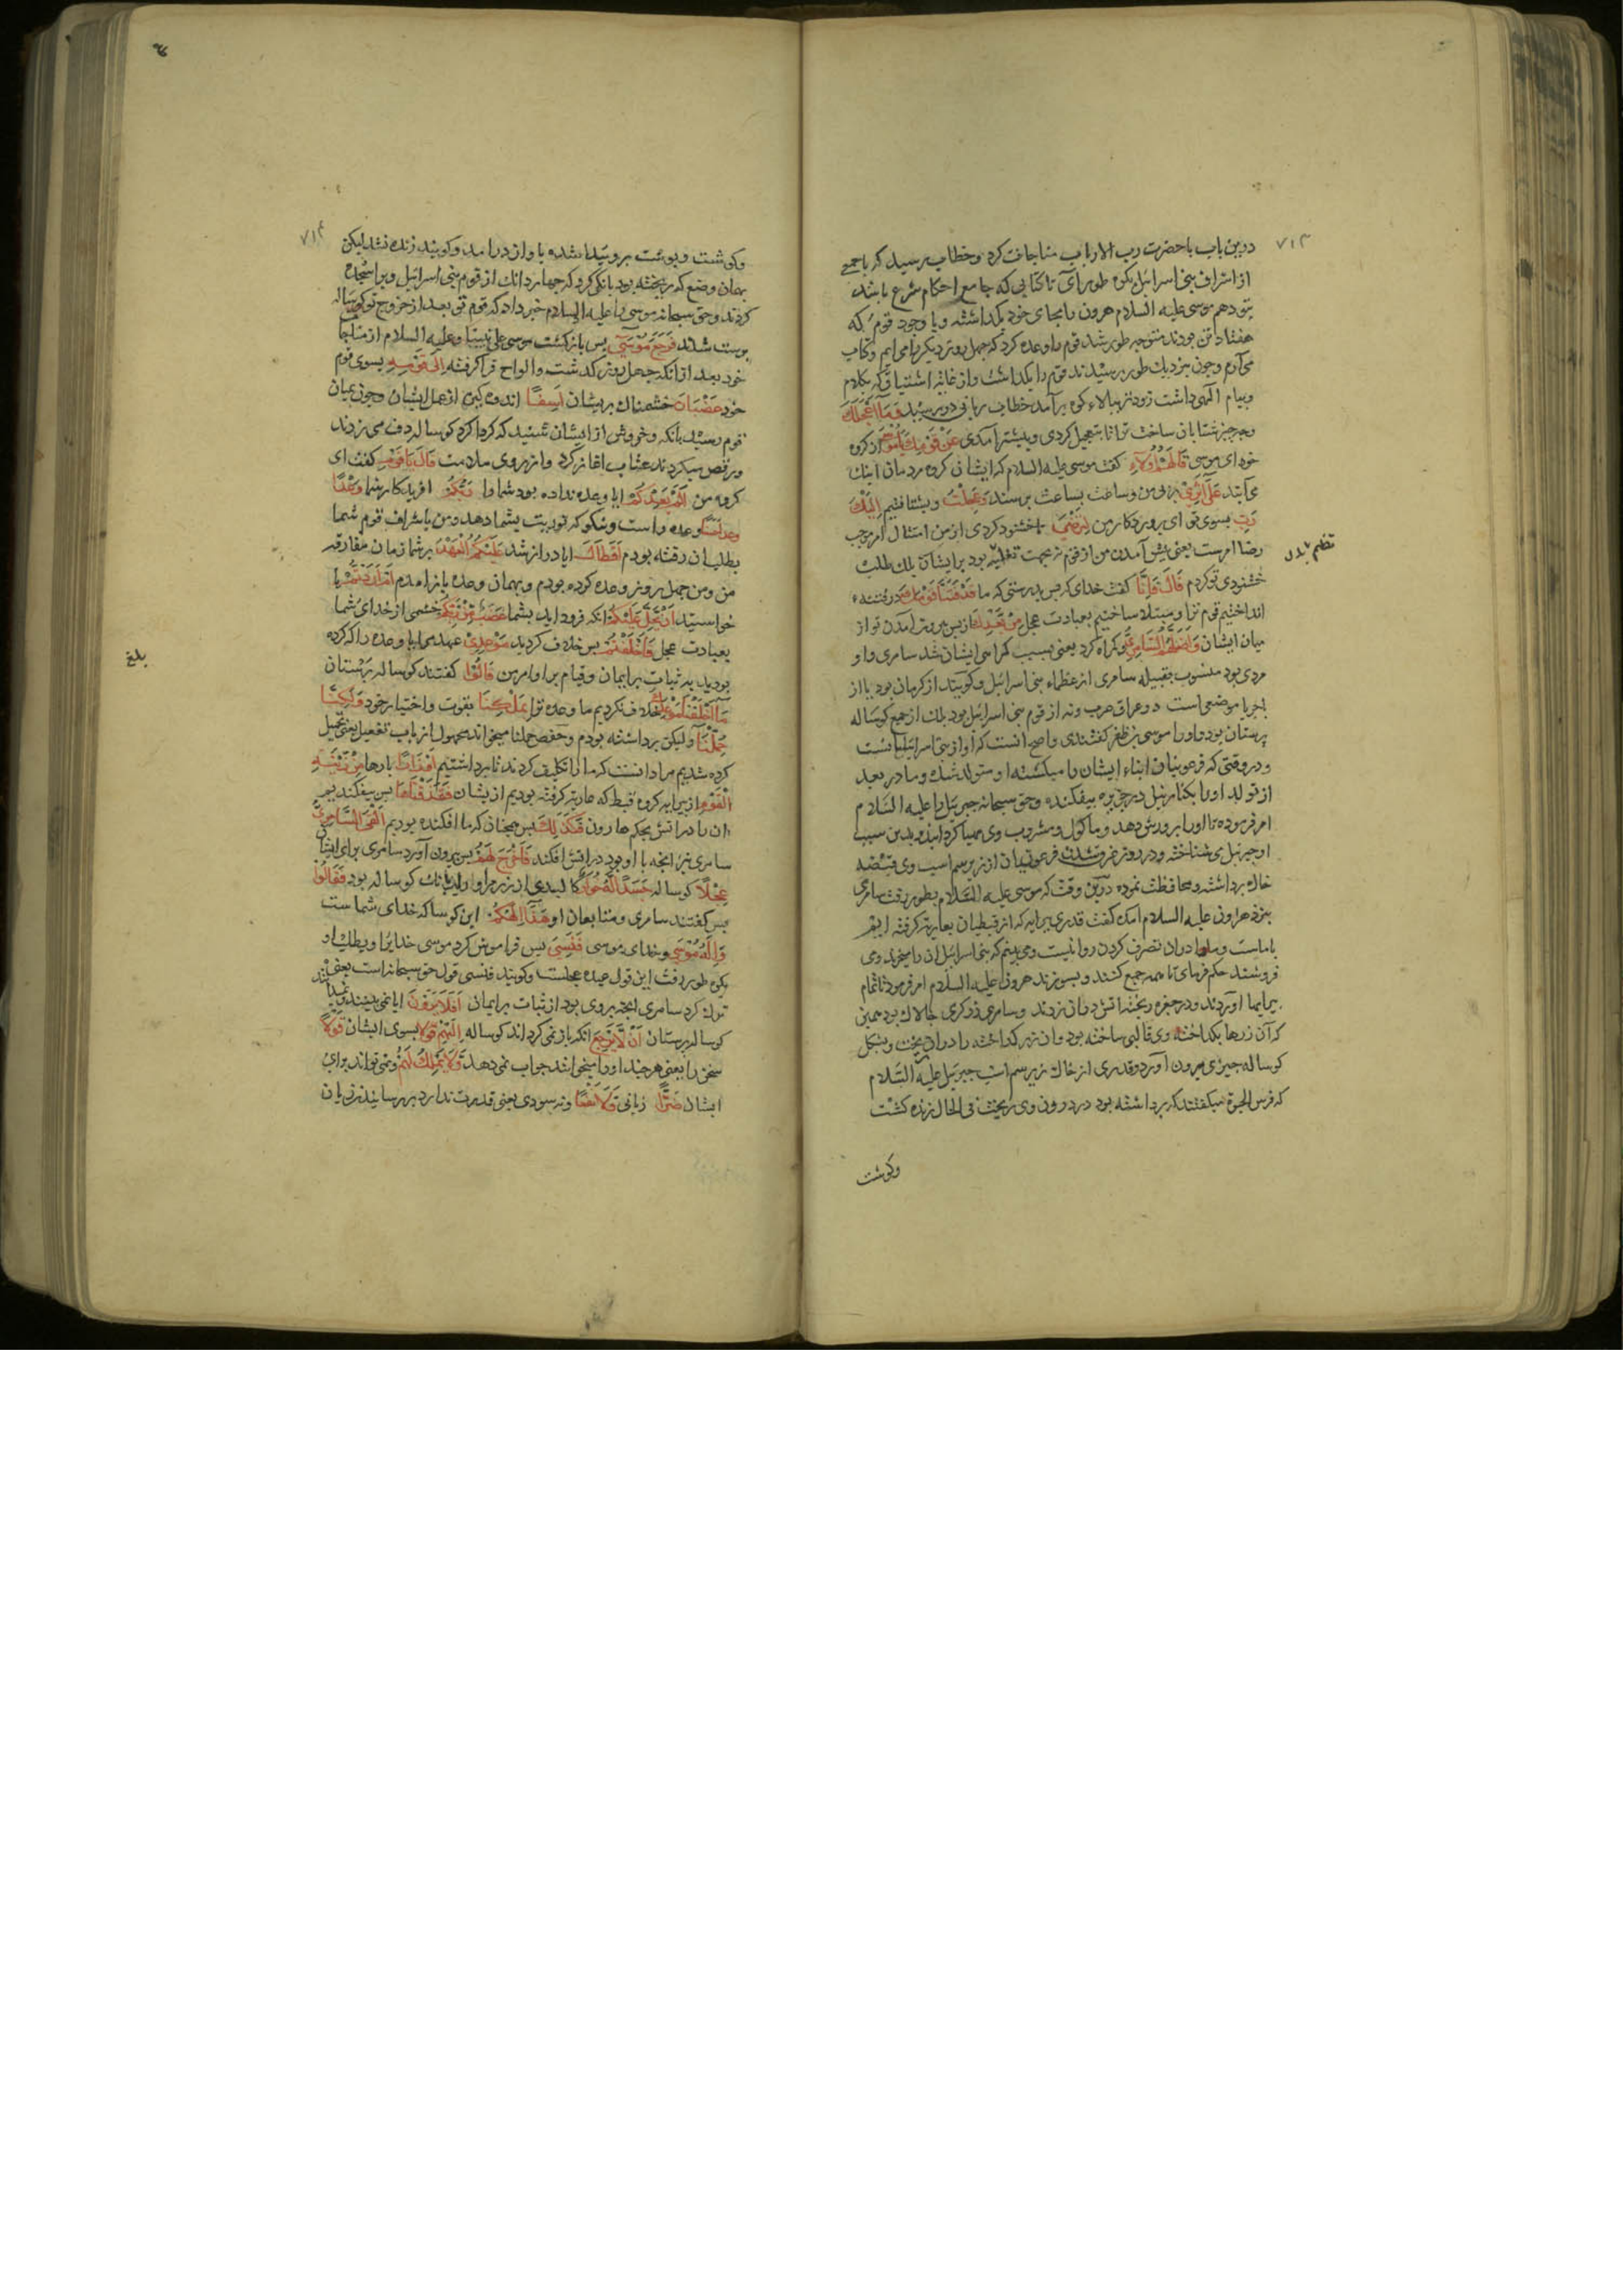 ۷۱۳
درین باب با حضرت رب الارباب مناجات کرد و خطاب رسید که با جمعی
از اشراف بنی اسرائیل بکوه طور برآی تا کتابی که جامع احکام شرع باشد
بتو دهم موسی علیه السلام هرون را بجای خود بکذاشته و با وجوه قوم که
هفتاد تن بودند متوجه طور شد قوم را وعده کرد که چهل روز دیکر بازمی ایم و کتاب
می آرم وچون بنزدیک طور رسیدند قوم را بکذاشت و از غایه اشتیاق که بکلام
و پیام الهی داشت زودتر ببالاء کوه برآمد خطاب ربانی دررسید وَمَا اَعْجَلَكَ
وچه چیز شتابان ساخت ترا تا بتعجیل کردی و پیشتر آمدی عَنْ قَوْمِكَ يَامُوسٰى از کروه
خود ای موسی قَالَ هُمْ اُولَاۤءِ کفت موسی علیه السلام که ایشان کروه مردمان اینک
می آیند عَلٰى اَثَرِيْ بر پی من و ساعت بساعت برسند وَعَجِلْتُ و بشتافتیم اِلَيْكَ
رَبِّ بسوی تو ای پروردکار من لِتَرْضٰى تا خشنود کردی از من امتثال امر موجب
رضا امرست یعنی پیش آمدن من از قوم نه بجهت تغلیه بود بر ایشان بلک طلب
خشنودی تو کردم قَالَ فَاِنَّا کفت خدای که پس بدرستی که ما قَدْ فَتَنَّا قَوْمَكَ در فتنه
انداختیم قوم ترا و مبتلا ساختیم بعبادت عجل مِنْ بَعْدِكَ از پس بیرون آمدن تو از
میان ایشان وَاَضَلَّهُمُ السَّامِرِيُّ و کمراه کرد یعنی بسبب کمراهی ایشان شد سامری و او
مردی بود منسوب بقبیله سامری از عظماء بنی اسرائیل و کویند از کرمان بود یا از
باجرما موضعی است در عراق عرب و نه از قوم بنی اسرائیل بود بلک از جمع کوساله
پرستان بود و او را موسی بن ظفر کفتندی و اصح انست که او از بنی اسرائیلیانست
و در وقتی که فرعونیان ابناء ایشان را میکشتند او متولد شد و مادر بعد
از تولد او را بکنار نیل در جزیره بیفکند و حق سبحانه جبرئیل را علیه السلام
امر فرموده تا او را پرورش دهد و ماکول و مشروب وی مهیا کرداند و بدین سبب
او جبرئیل می شناخته و در روز غرق شدن فرعونیان از زیر سم اسب وی قبضه
خاک برداشته و محافظت نموده درین وقت که موسی علیه السلام بطور رفت سامری
بنزد هرون علیه السلام امد کفت قدری پیرایه که از قبطیان بعاریه کرفته ایم
با ماست و ما را دران تصرف کردن روا نیست و می بینم که بنی اسرائیل ان را میخرند و می
فروشند حکم فرمای تا همه جمع کنند و بسوزند هرون علیه السلام امر فرمود تا تمام
پیرایها اوردند و در حفره ریختند اتش دران زدند و سامری زرکری چالاک بود همین
که آن زرها بکداخته وی قالبی ساخته بود و ان زر کداخته را دران ریخت و بشکل
کوساله چیزی بیرون آورد و قدری از خاک زیر سم اسب جبرئیل علیه السلام
که فرس الحیوة میکفتند که برداشته بود در درون وی ریخت فی الحال زنده کشت
وکوشت
۷۱۴
وکوشت و پوست برو پیدا شده باواز درامد و کویند زنده نشد لیکن
بهمان وضع که ریخته بود بانکی کرد که چهار دانک از قوم بنی اسرائیل ویرا سجده
کردند وحق سبحانه موسی را علیه السلام خبر داد که قوم تو بعد از خروج تو کوساله
پرست شدند فَرَجَعَ مُوْسٰى پس بازکشت موسی علی نبینا وعلیه السلام از مناجا
خود بعد از انکه چهل روز کذشت و الواح فرا کرفته اِلٰى قَوْمِهِ بسوی قوم
خود غَضْبَانَ خشمناک بر یشان اَسِفًا اندوهکین از عمل ایشان وچون بمیان
قوم رسید بانک و خروش از ایشان شنید که کرداکرد کوساله دف می زدند
و رقص میکردند عتاب اغاز کرد و از روی ملامت قَالَ يَا قَوْمِ کفت ای
کروه من اَلَمْ يَعِدْكُمْ ایا وعده نداده بود شما را رَبُّكُمْ افریدکار شما وَعْدًا
حَسَنًا وعده راست و نیکو که توریت بشما دهد و من با شراف قوم شما
بطلب ان رفته بودم اَفَطَالَ ایا دراز شد عَلَيْكُمُ الْعَهْدُ بر شما زمان مفارقه
من و من چهل روز وعده کرده بودم و بهمان وعده بازامدم اَمْ اَرَدْتُمْ یا
خواستید اَنْ يَحِلَّ عَلَيْكُمْ انکه فرود اید بشما غَضَبٌ مِنْ رَبِّكُمْ خشمی از خدای شما
بعبادت عجل فَاَخْلَفْتُمْ پس خلاف کردید مَوْعِدِيْ عهد مرا یا وعده را که کرده
بودید به ثبات بر ایمان وقیام بر اوامر من قَالُوْا کفتند کوساله پرستان
مَا اَخْلَفْنَا مَوْعِدَكَ خلاف نکردیم ما وعده ترا بِمَلْكِنَا بقوت و اختیار خود وَلٰكِنَّا
حُمِّلْنَا و لیکن برداشته بودم و حفص حملنا میخواند مجهول از باب تفعیل یعنی تحمیل
کرده شدیم مراد انست که ما را تکلیف کردند تا برداشتیم اَوْزَارًا بارها مِنْ زِيْنَةِ
الْقَوْمِ از پیرایه کروه قبط که عاریه کرفته بودیم از یشان فَقَذَفْنَاهَا پس بیفکندیم
ان را در اتش بحکم هارون فَكَذٰلِكَ پس همچنان که ما افکنده بودیم اَلْقَى السَّامِرِيُّ
سامری نیز انچه با او بود در اتش افکند فَاَخْرَجَ لَهُمْ پس بیرون آورد سامری برای ایشا
عِجْلًا کوساله جَسَدًا لَهُ خُوَارٌ کالبدی از زر مر او را بانک کوساله بود فَقَالُوْا
پس کفتند سامری و متابعان او هٰذَا اِلٰهُكُمْ این کوساله خدای شماست
وَاِلٰهُ مُوْسٰى و خدای موسی فَنَسِيَ پس فراموش کرد موسی خدایرا و بطلب او
بکوه طور رفت این قول عبده عجلست و کویند فنسی قول حق سبحانه است یعنی
ترک کرد سامری انچه بر وی بود از ثبات بر ایمان اَفَلَا يَرَوْنَ ایا نمی بینند
کوساله پرستان اَنْ لَا يَرْجِعُ انکه باز نمی کرداند کوساله اِلَيْهِمْ قَوْلًا بسوی ایشان
سخن را یعنی هر چند او را میخوانند جواب نمی دهد وَلَا يَمْلِكُ لَهُمْ و نمی تواند برای
ایشان ضَرًّا زیانی وَلَا نَفْعًا و نه سودی یعنی قدرت ندارد بر رسانیدن زیان
بلغ